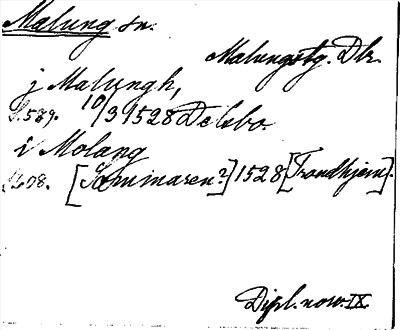 Malung sn.
Malungstg. Dlr.
j Malungh,
S. 589. 10/3 1528 Delsbo.
i Molang
S. 608. [Sommaren?] 1528 [Trondhjem].
Dipl. norv. IX.